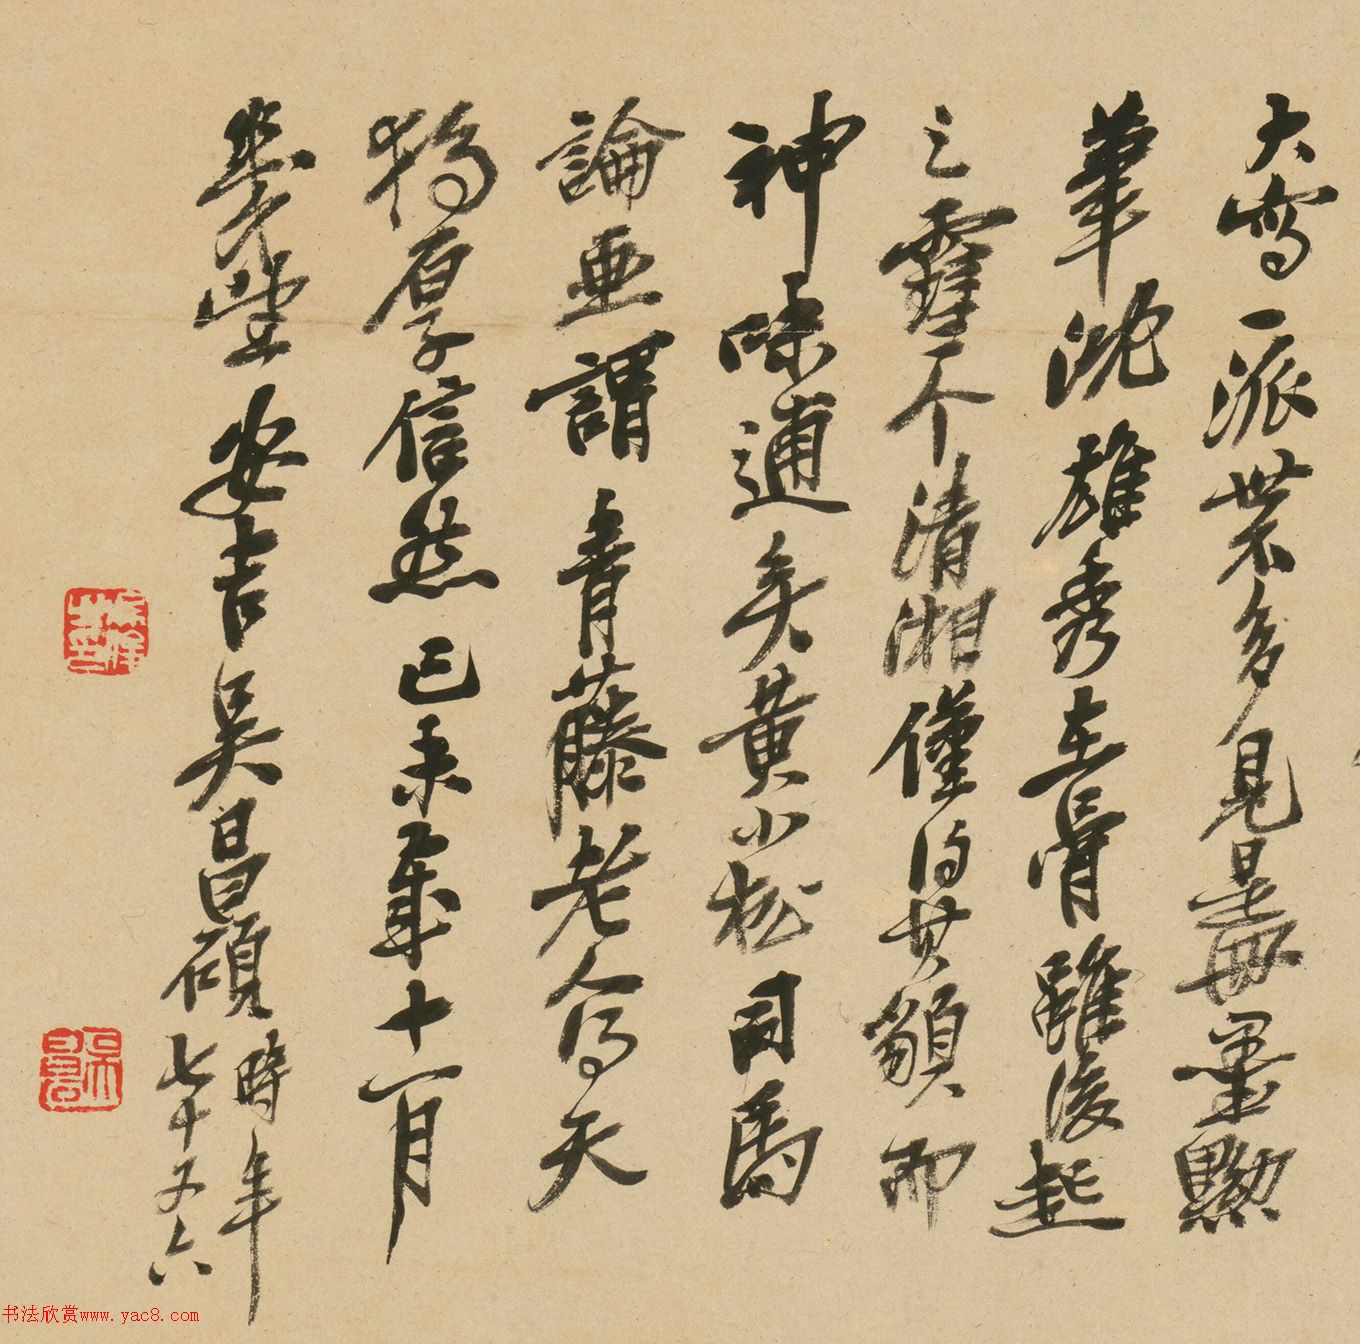 大寫一派世不多見是冊墨黝
筆沈雄秀在骨雖後起
之霍个清湘僅得其貌而
神味逋矣黃小松司馬
論畫謂青藤老人得天
獨厚信然己未年十一月
安吉吳昌碩時年
七十又六
书法欣赏www.yac8.com